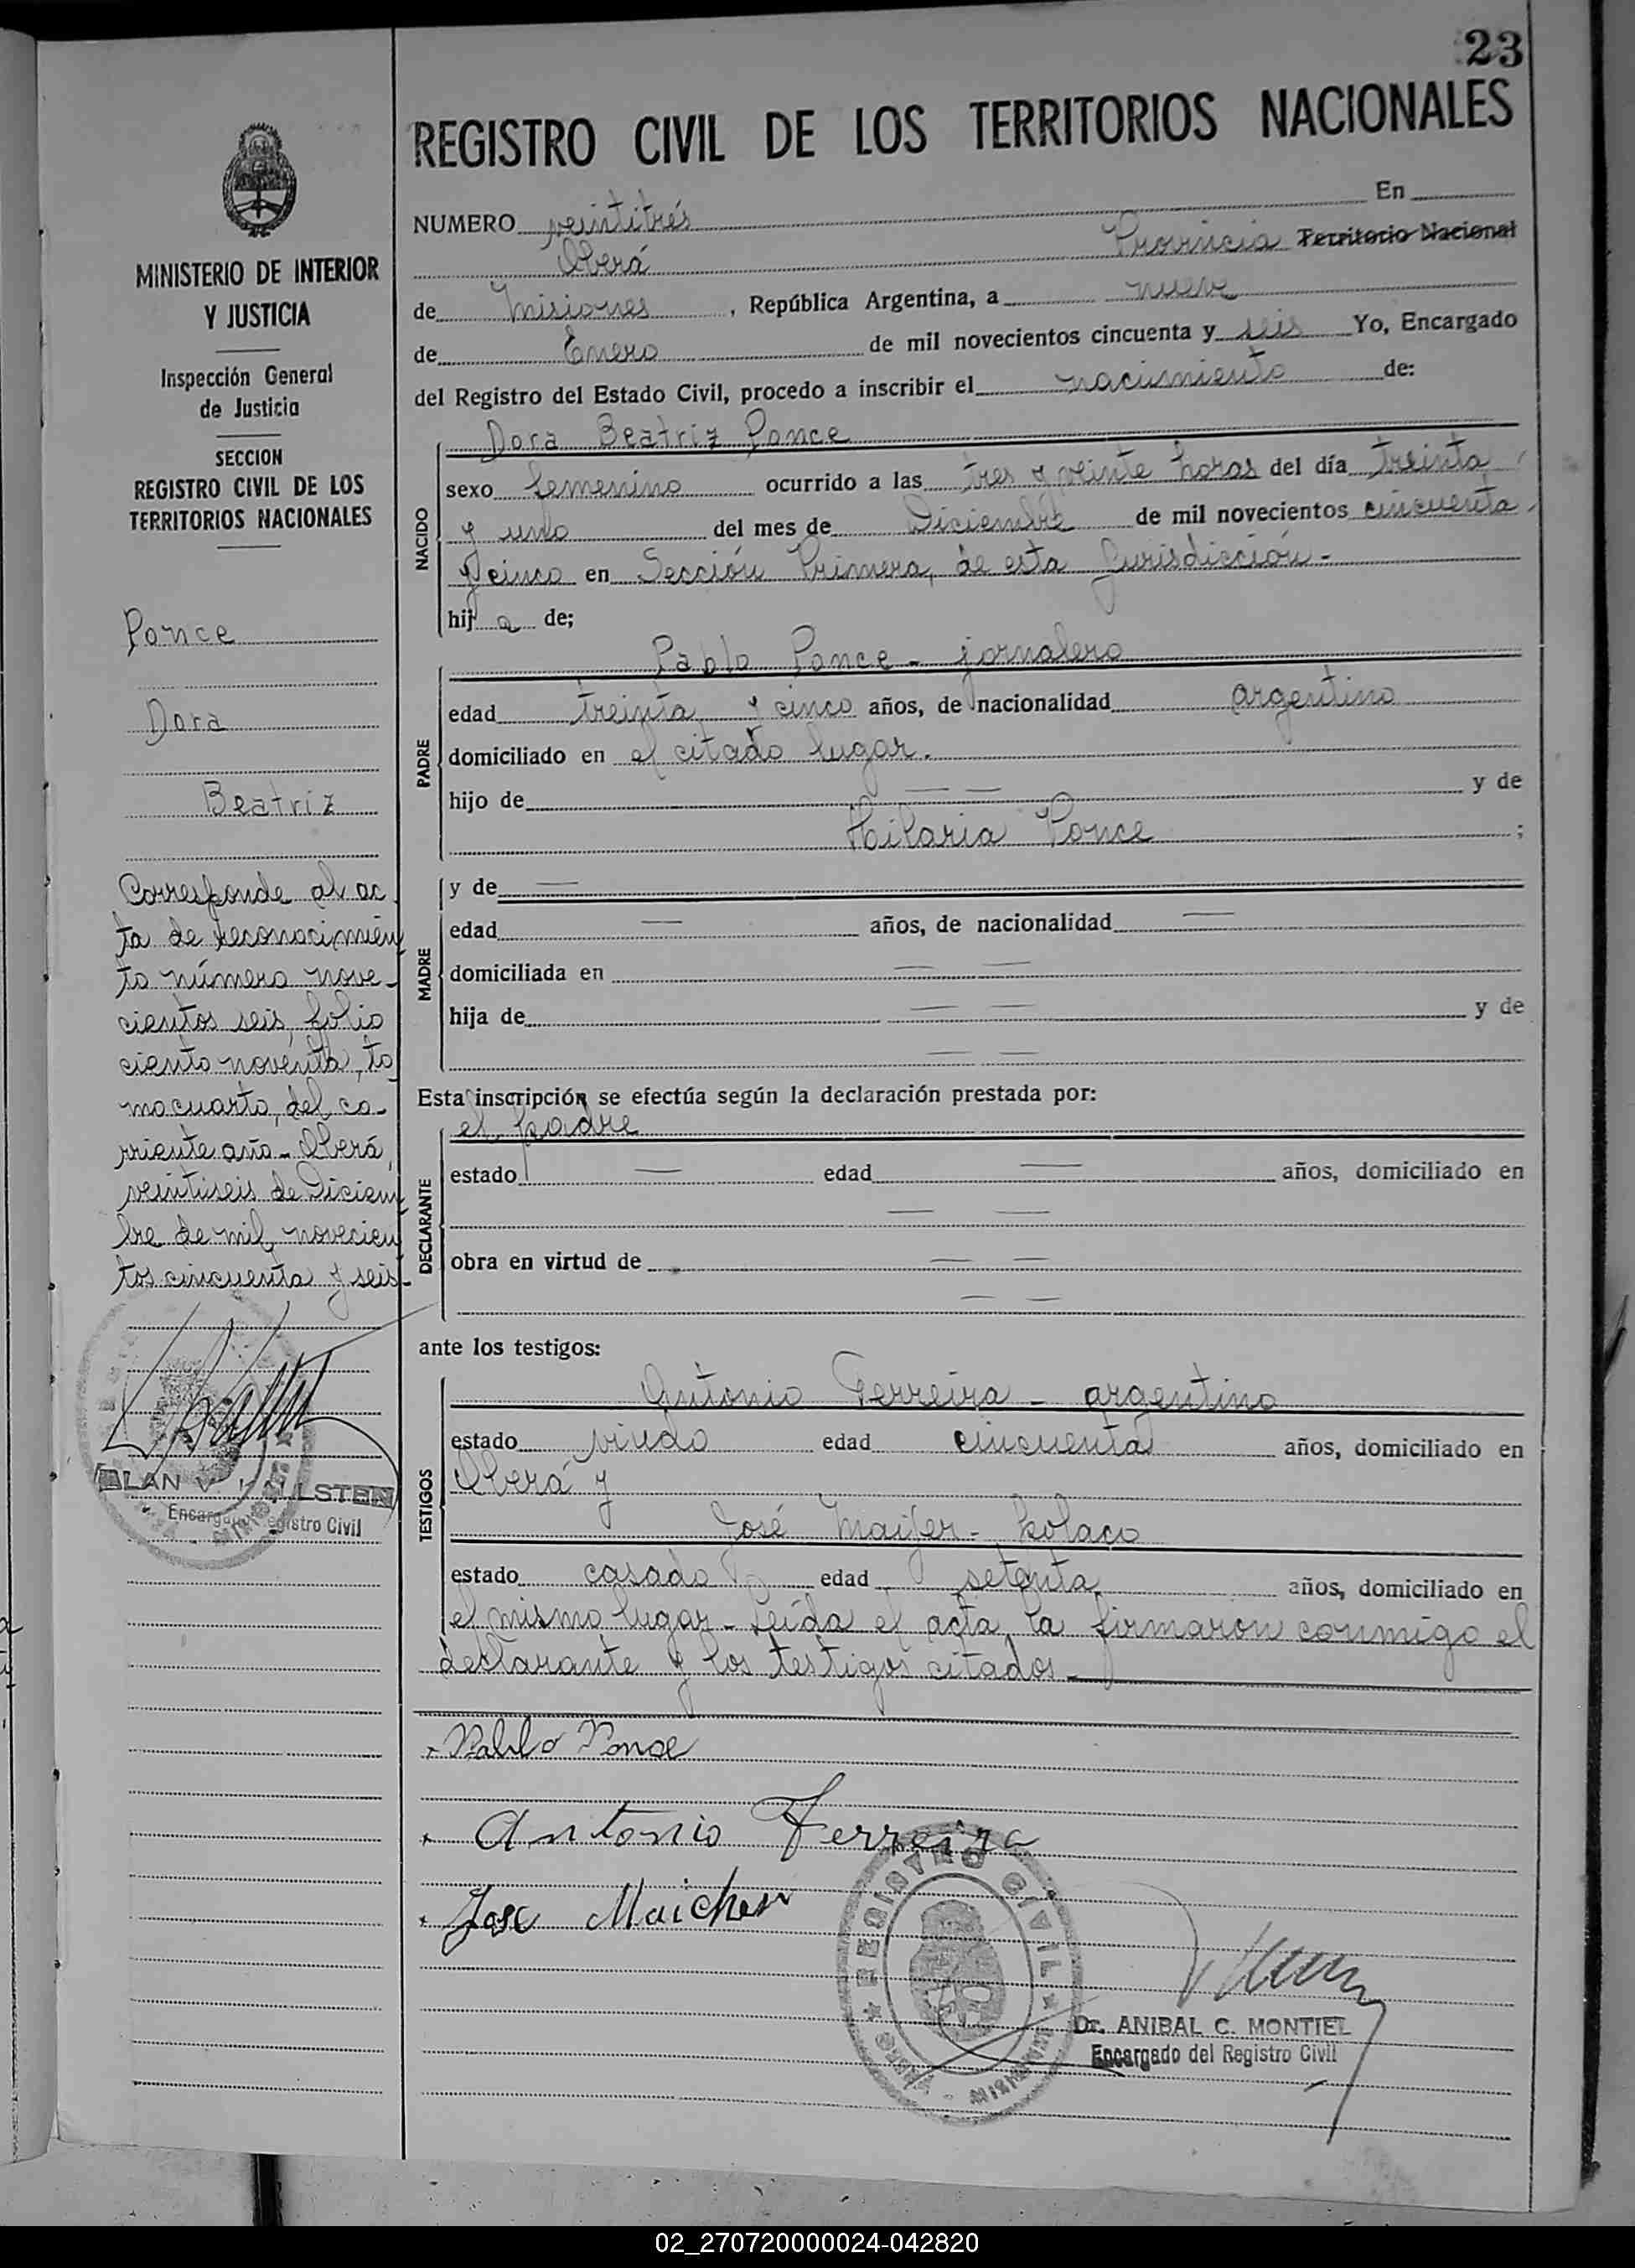 23
REGISTRO CIVIL DE LOS TERRITORIOS NACIONALES
MINISTERIO DE INTERIOR
Y JUSTICIA
Inspección General
de Justicia
SECCION
REGISTRO CIVIL DE LOS
TERRITORIOS NACIONALES
Ponce
Dora
Beatriz
Corresponde al ac
ta de reconocimien
to número nove-
cientos seis, folio
ciento noventa, to
mo cuarto, del co-
rriente año - Oberá,
veintiseis de Diciem
bre de mil novecien
tos cincuenta y seis-
Registro Civil
NUMERO veintitrés En
Oberá Provincia Territorio Nacional
de Misiones, República Argentina, a nueve
de Enero de mil novecientos cincuenta y seis Yo, Encargado
del Registro del Estado Civil, procedo a inscribir el nacimiento de:
Dora Beatriz Ponce
NACIDO
sexo femenino ocurrido a las tres y veinte horas del día treinta
y uno del mes de Diciembre de mil novecientos cincuenta
y cinco en Sección Primera, de esta Jurisdicción.-
hij a de;
Pablo Ponce - jornalero
PADRE
edad treinta y cinco años, de nacionalidad argentino
domiciliado en el citado lugar.
hijo de — — y de
Hilaria Ponce ;
MADRE
y de —
edad — años, de nacionalidad —
domiciliada en — —
hija de — — y de
— —
Esta inscripción se efectúa según la declaración prestada por:
el padre
DECLARANTE
estado — edad — años, domiciliado en
— —
obra en virtud de — —
— —
ante los testigos:
Antonio Ferreira - argentino
TESTIGOS
estado viudo edad cincuenta años, domiciliado en
Oberá y
José Maijer - polaco
estado casado edad setenta años, domiciliado en
el mismo lugar - Leída el acta, la firmaron conmigo el
declarante y los testigos citados -
Pablo Ponce
Antonio Ferreira
Jose Maicher
REGISTRO CIVIL
OBERA - MISIONES
Dr. ANIBAL C. MONTIEL
Encargado del Registro Civil
02_270720000024-042820